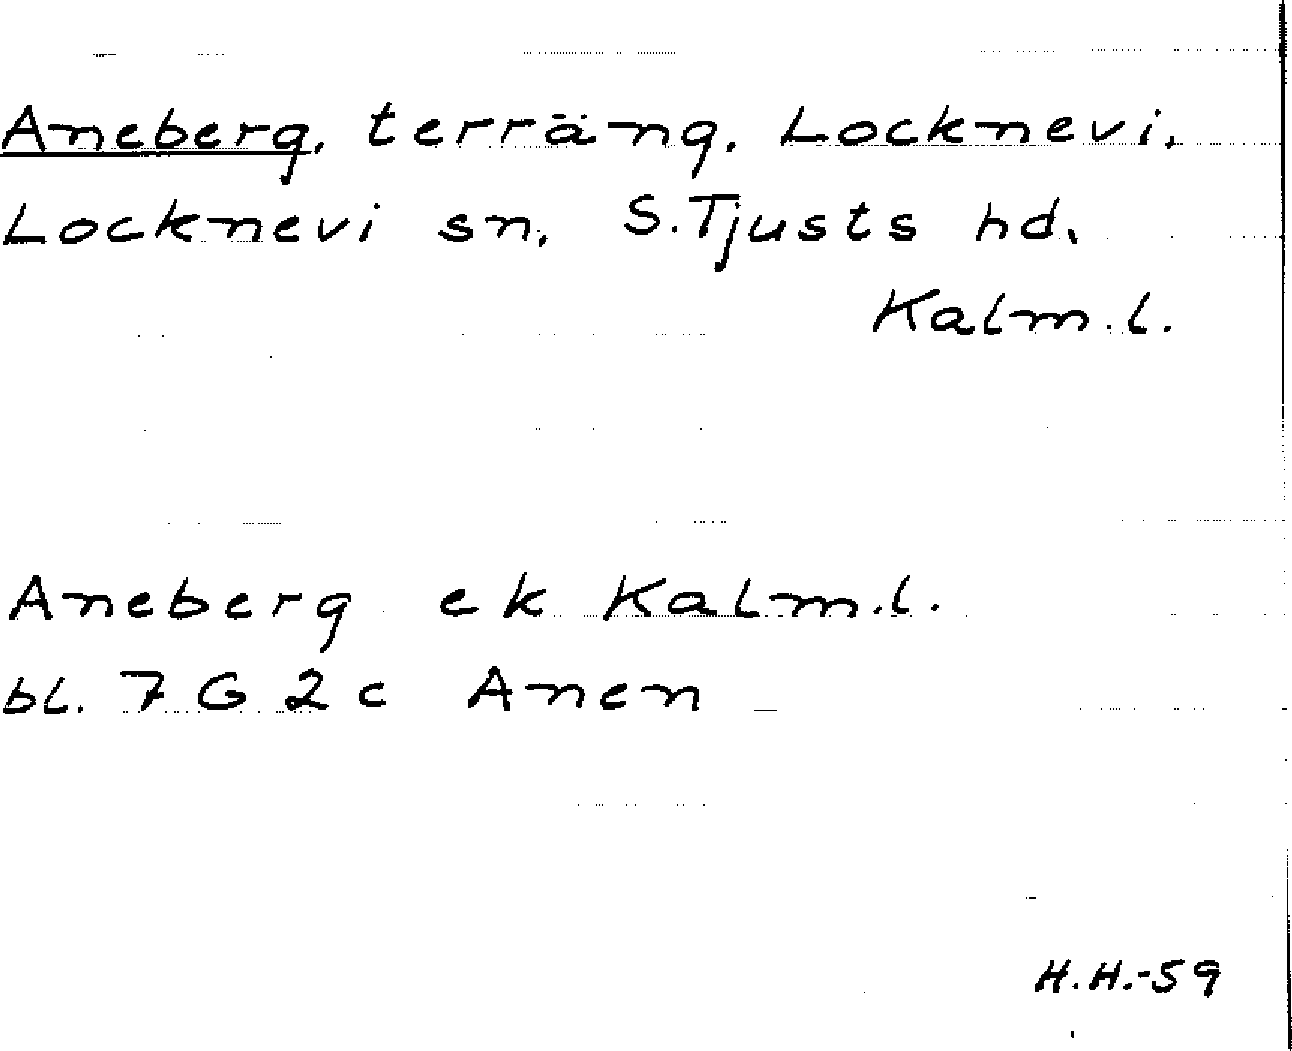 Aneberg, terräng, Locknevi,
Locknevi sn, S. Tjusts hd,
Kalm. l.
Aneberg ek Kalm. l.
bl. 7 G 2 c Anen
H.H.-59